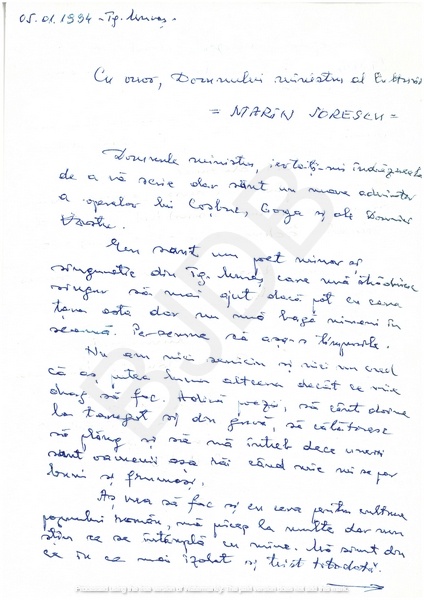 05.01.1994 - Tg. Mureș -
Cu onor, Domnului ministru al Culturii
= MARIN SORESCU =
Domnule ministru, iertați-mi îndrăzneala
de a vă scrie dar sânt un mare admirator
a operelor lui Coșbuc, Goga și ale Domniei
Voastre.
Eu sânt un poet minor și
singuratic din Tg. Mureș care mă străduiesc
singur să mai ajut dacă pot cu ceva
țara asta dar nu mă bagă nimeni în
seamă. Personne să așa-s timpurile.
Nu am nici serviciu și nici nu cred
că aș putea lucra altceva decât ce mie
drag să fac. Adică poezii, să cânt doine
la taragot și din gură, să călătoresc
să plâng și să mă întreb dece unii
sunt oamenii așa răi când mie mi se par
buni și frumoși.
Aș vrea să fac și eu ceva pentru cultura
poporului român, mă pricep la multe dar nu
știu ce se întâmplă cu mine. Mă simt din
ce în ce mai izolat și trist totodată.
BJDB